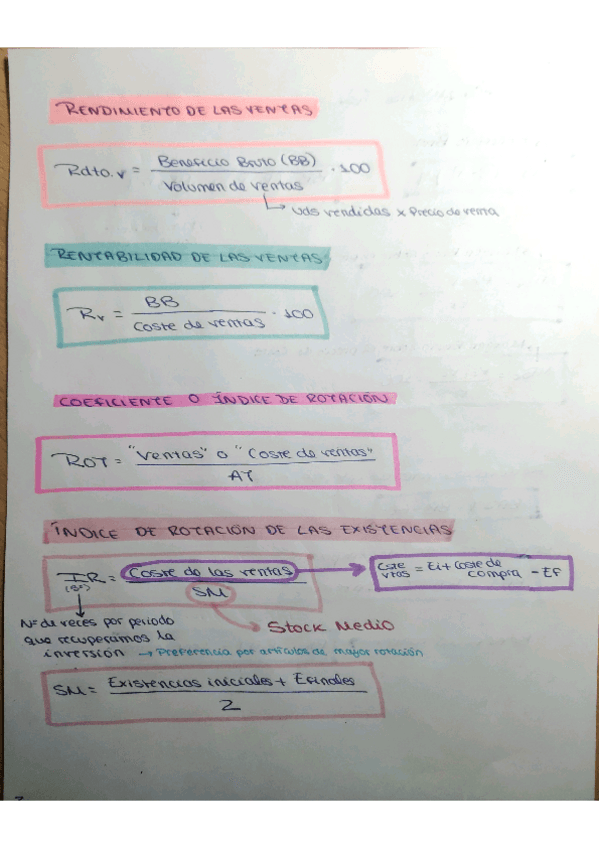 RENDIMIENTO DE LAS VENTAS
Rdto.v = Beneficio Bruto (BB) / Volumen de ventas · 100
Uds vendidas x Precio de venta
RENTABILIDAD DE LAS VENTAS
Rv = BB / Coste de ventas · 100
COEFICIENTE O ÍNDICE DE ROTACIÓN
ROT = "Ventas" o "Coste de ventas" / AT
ÍNDICE DE ROTACIÓN DE LAS EXISTENCIAS
IR = Coste de las ventas / SM
Cste vtas = Ei + Coste de compra - Ef
Nº de veces por periodo
que recuperamos la
inversión → Preferencia por artículos de mayor rotación
Stock Medio
SM = Existencias iniciales + Efinales / 2